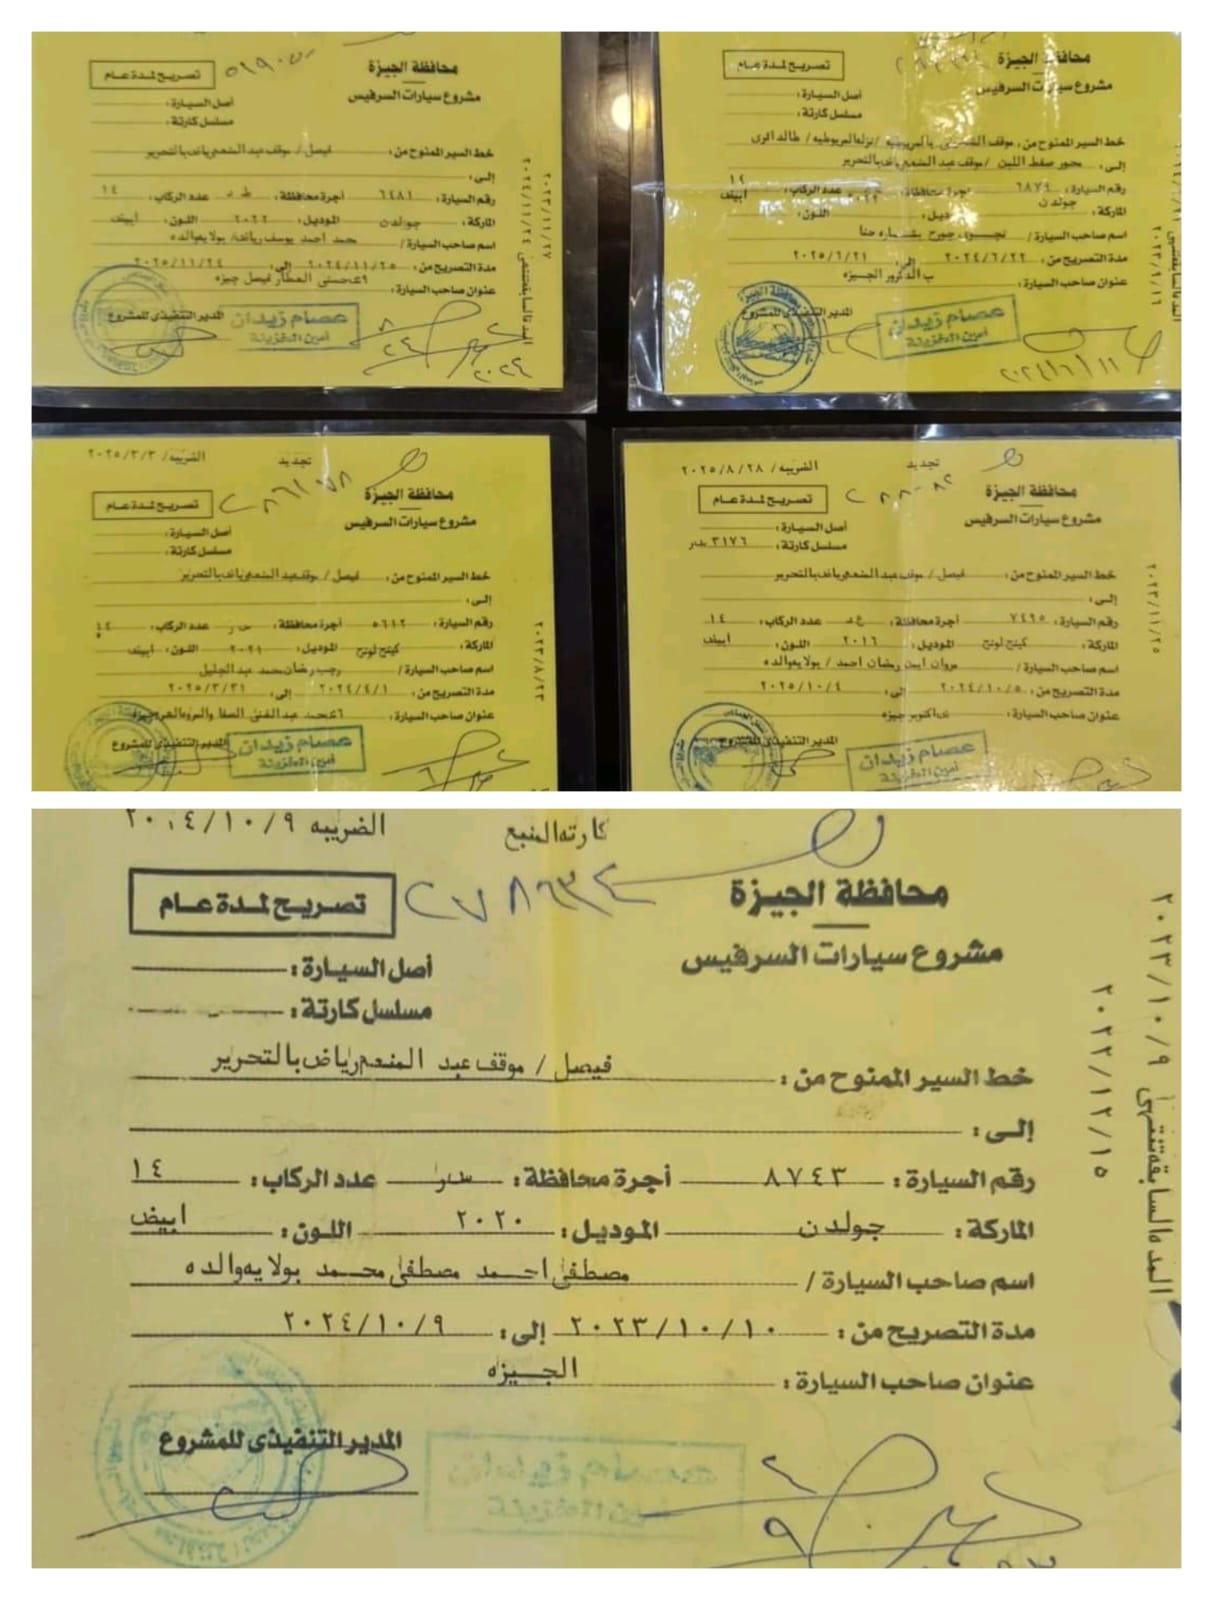 محافظة الجيزة
تصريح لمدة عام
مشروع سيارات السرفيس
أصل السيارة :
مسلسل كارتة :
خط السير الممنوح من : فيصل / موقف عبد المنعم رياض بالتحرير
إلى :
رقم السيارة : ٦٤٨١ أجرة محافظة : عدد الركاب : ١٤
الماركة : جولدن الموديل : ٢٠٢٢ اللون : أبيض
اسم صاحب السيارة / محمد احمد يوسف رياض/ بولايه والده
مدة التصريح من : ٢٠٢٤/١١/٢٥ إلى : ٢٠٢٥/١١/٢٤
عنوان صاحب السيارة : حسنى العطار فيصل جيزه
المدير التنفيذى للمشروع
عصام زيدان
أمين الخزينة
٢٠٢٣/١/٢٧
محافظة الجيزة
تصريح لمدة عام
مشروع سيارات السرفيس
أصل السيارة :
مسلسل كارتة :
خط السير الممنوح من : موقف بالمريوطيه / نزله المريوطيه /
إلى : محور صفط اللبن / موقف عبد المنعم رياض بالتحرير
رقم السيارة : ٦٨٧٩ أجرة محافظة : عدد الركاب : ١٤
الماركة : جولدن الموديل : اللون : أبيض
اسم صاحب السيارة / جورج بشاره حنا
مدة التصريح من : ٢٠٢٤/٦/٢٢ إلى : ٢٠٢٥/٦/٢١
عنوان صاحب السيارة : ب الدكرور الجيزه
المدير التنفيذى للمشروع
عصام زيدان
أمين الخزينة
٢٠٢٤/٦/١١
تجديد الضريبه/ ٢٠٢٥/٣/٣
محافظة الجيزة
تصريح لمدة عام
مشروع سيارات السرفيس
أصل السيارة :
مسلسل كارتة :
خط السير الممنوح من : فيصل / موقف عبد المنعم رياض بالتحرير
إلى :
رقم السيارة : ٥٦١٢ أجرة محافظة : عدد الركاب : ١٤
الماركة : كينج لونج الموديل : ٢٠٢١ اللون : أبيض
اسم صاحب السيارة / رجب رمضان محمد عبد الجليل
مدة التصريح من : ٢٠٢٤/٤/١ إلى : ٢٠٢٥/٣/٣١
عنوان صاحب السيارة : ٦ محمد عبد الغنى الصفا والمروه الهرم جيزه
المدير التنفيذى للمشروع
عصام زيدان
أمين الخزينة
٢٠٢٣/٨/٢٣
تجديد الضريبه/ ٢٠٢٥/٨/٢٨
محافظة الجيزة
تصريح لمدة عام
مشروع سيارات السرفيس
أصل السيارة :
مسلسل كارتة : ٣١٧٦
خط السير الممنوح من : فيصل / موقف عبد المنعم رياض بالتحرير
إلى :
رقم السيارة : ٧٤٦٥ أجرة محافظة : عدد الركاب : ١٤
الماركة : كينج لونج الموديل : ٢٠١٦ اللون : أبيض
اسم صاحب السيارة / مروان ايمن رمضان احمد / بولايه والده
مدة التصريح من : ٢٠٢٤/١٠/٥ إلى : ٢٠٢٥/١٠/٤
عنوان صاحب السيارة : اكتوبر جيزه
المدير التنفيذى للمشروع
عصام زيدان
أمين الخزينة
٢٠٢٣/١/٢٥
كارته المنبع الضريبه ٢٠٢٤/١٠/٩
محافظة الجيزة
تصريح لمدة عام
٢٧٨٦٣٤
مشروع سيارات السرفيس
أصل السيارة :
مسلسل كارتة :
خط السير الممنوح من : فيصل / موقف عبد المنعم رياض بالتحرير
إلى :
رقم السيارة : ٨٧٤٣ أجرة محافظة : عدد الركاب : ١٤
الماركة : جولدن الموديل : ٢٠٢٠ اللون : ابيض
اسم صاحب السيارة / مصطفى احمد مصطفى محمد بولايه والده
مدة التصريح من : ٢٠٢٣/١٠/١٠ إلى : ٢٠٢٤/١٠/٩
عنوان صاحب السيارة : الجيزه
المدير التنفيذى للمشروع
المده السابقه تنتهى ٢٠٢٣/١٠/٩
٢٠٢٢/١٢/١٥